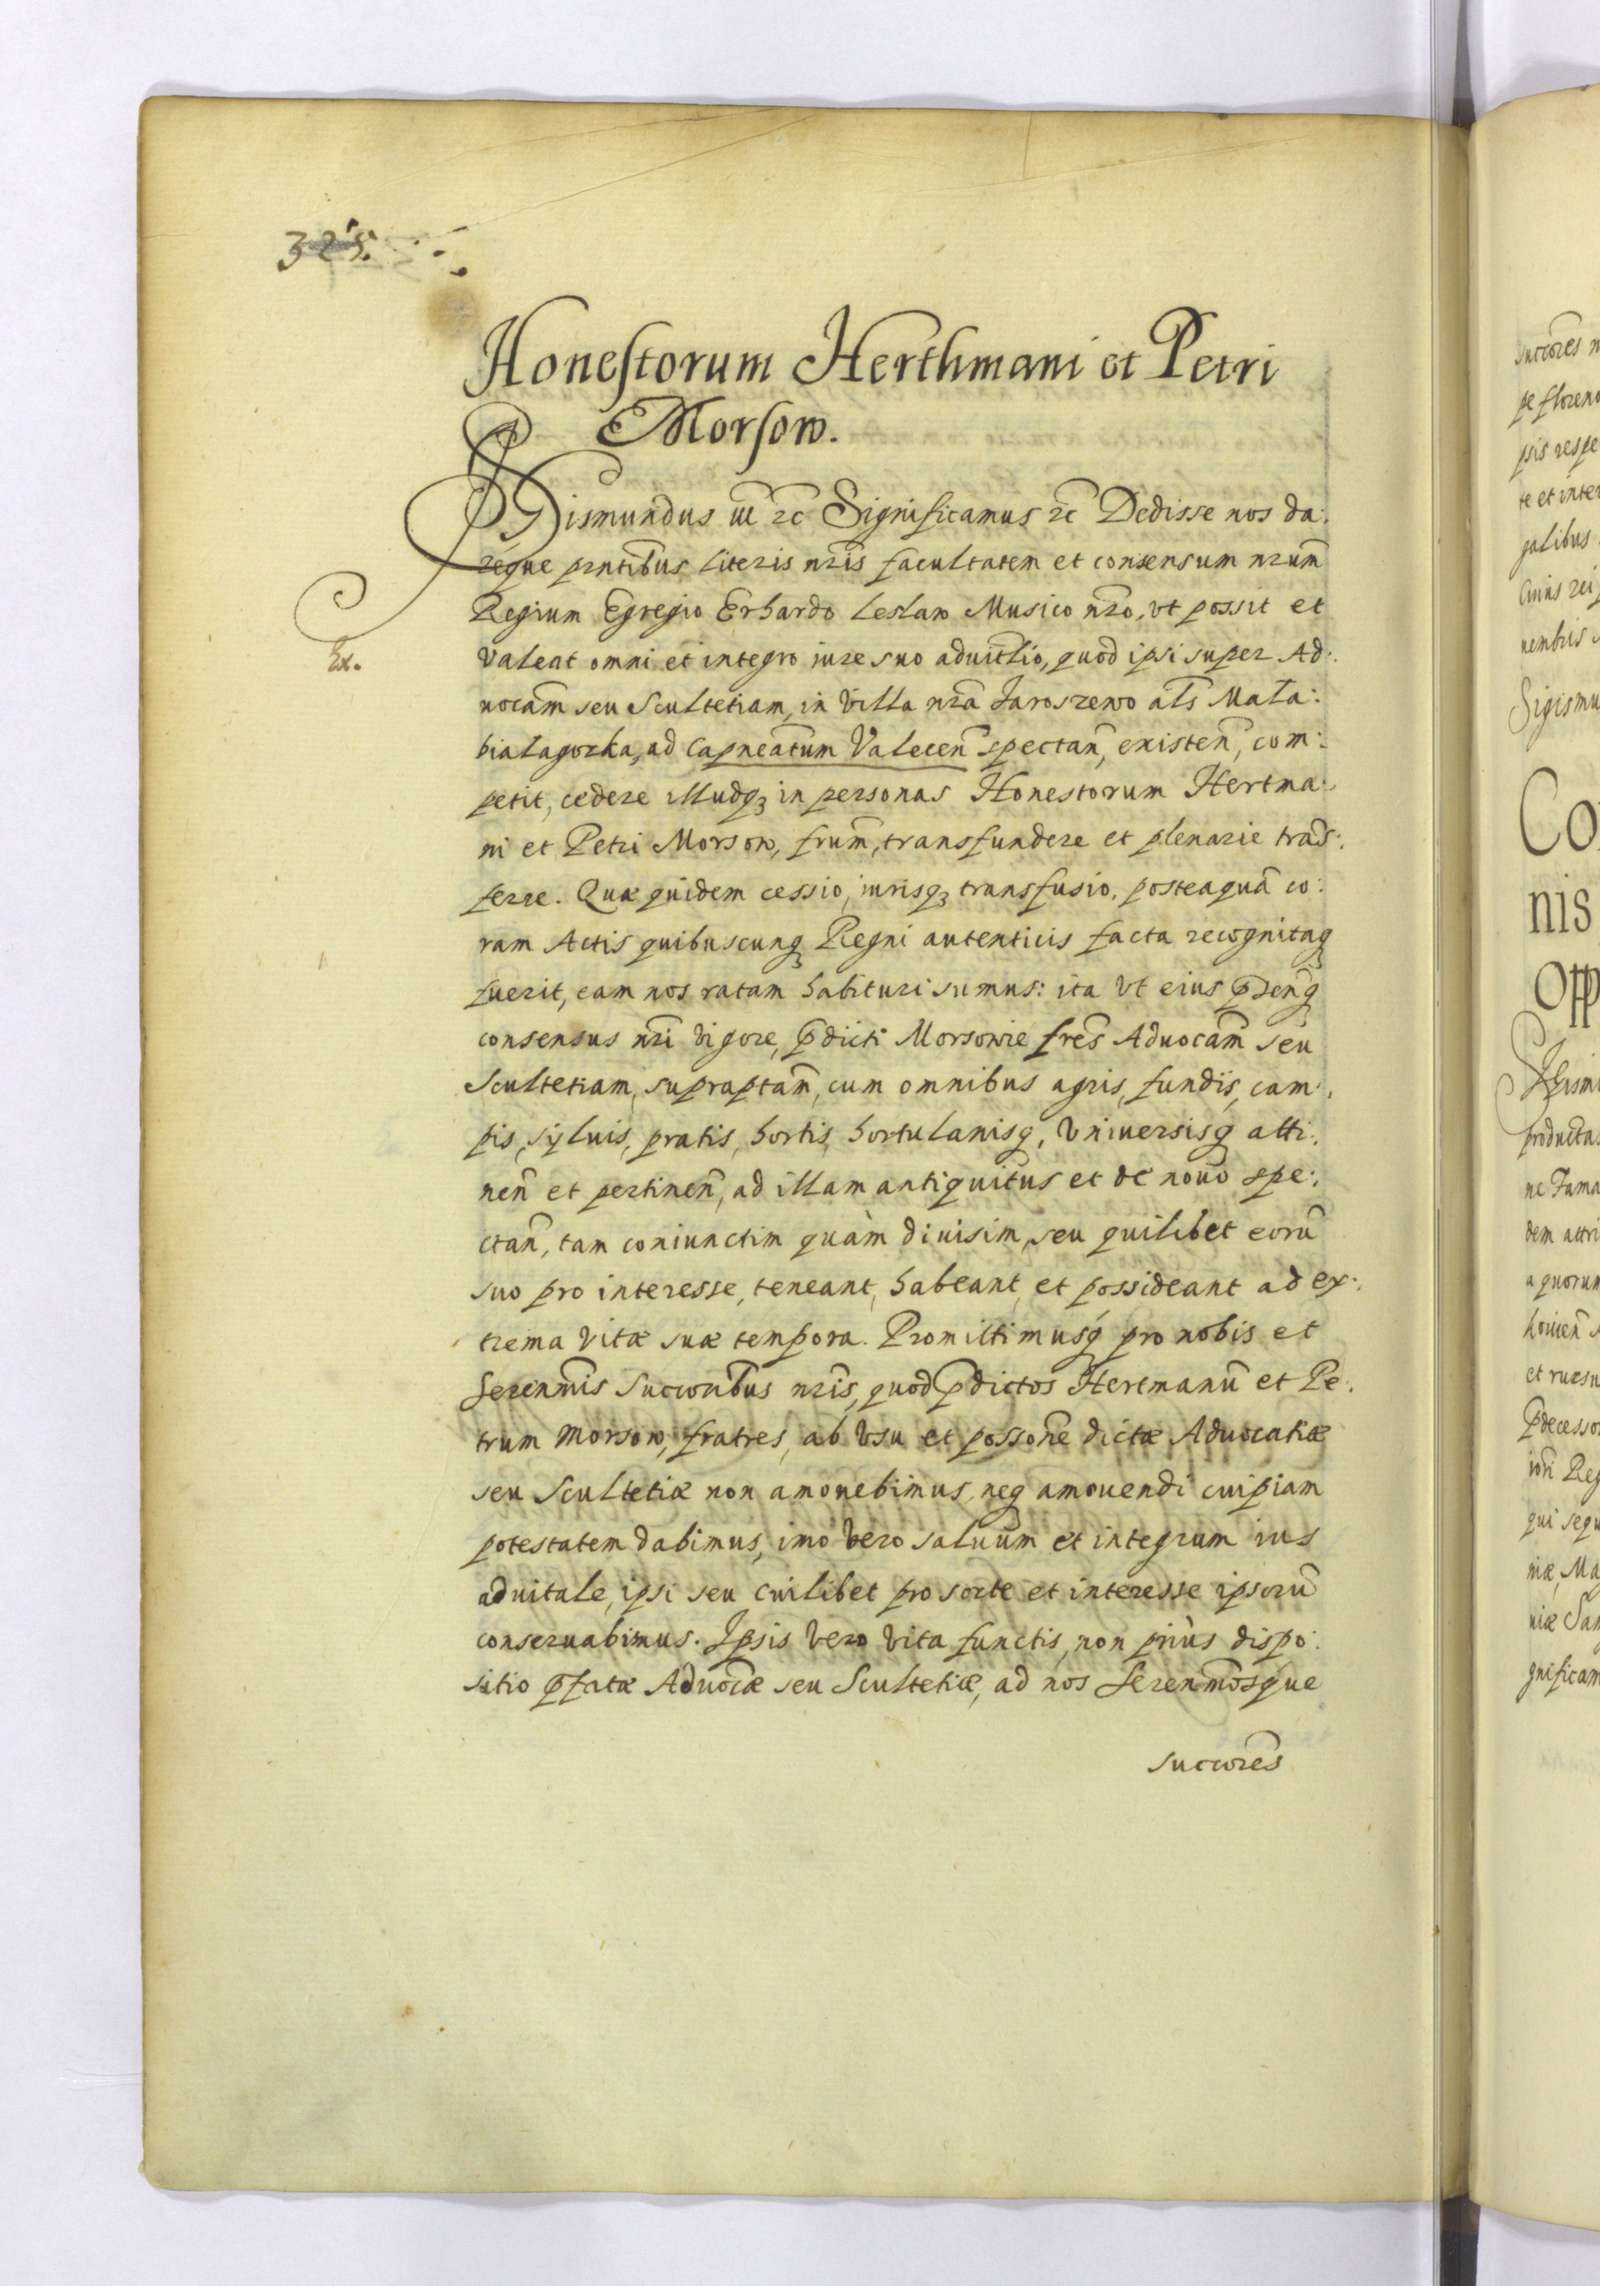 325.
Honestorum Herthmani et Petri
Morsow.
Sigismundus III etc Significamus etc Dedisse nos da:
reque prntibus literis nris facultatem et consensum nrum
Regium Egregio Erhardo Leslaw Musico nro, vt possit et
Ex.
valeat omni et integro iure suo aduitlio, quod ipsi super Ad:
uocam seu Scultetiam, in villa nra Jaroszewo als Mala:
bialagorka, ad Capneatum Valecen spectan, existen, com:
petit, cedere illudq3 in personas Honestorum Hertma:
ni et Petri Morsow, frum, transfundere et plenarie tras:
ferre. Quæ quidem cessio, iurisq3 transfusio, posteaquã co:
ram Actis quibuscunq3 Regni autenticis facta recognitaq3
fuerit, eam nos ratam habituri sumus: ita vt eius
consensus nri vigore, pdicti Morsowie fres Aduocam seu
Scultetiam, supraptam, cum omnibus agris, fundis, cam:
pis, syluis, pratis, hortis, hortulanisq, vniuersisq atti:
nen et pertinen, ad illam antiquitus et de nouo spe:
ctan, tam coniunctim quàm diuisim, seu quilibet eorũ
suo pro interesse, teneant, habeant, et possideant ad ex:
trema vitæ suæ tempora. Promittimusq pro nobis et
Serenmis Succoribus nris, quod pdictos Hertmanũ et Pe:
trum Morsow, fratres, ab vsu et possone dictæ Aduocatiæ
seu Scultetiæ non amouebimus, neq amouendi cuipiam
potestatem dabimus, imo vero saluum et integrum ius
aduitale, ipsi seu cuilibet pro sorte et interesse ipsorũ
conseruabimus. Ipsis vero vita functis, non priùs dispo:
sitio pfatæ Aduocæ seu Scultetiæ, ad nos Serenmosque
succores
succores
pe floreno
psis respe
te et inter
galibus
Cuius rei
nembris
Sigismu
Co
nis
Opp
Sigismu
productas
ne Fama
dem attri
a quorum
et
pdecessor
Reg
qui sequ
niæ, Ma
niæ Sam
gnificam